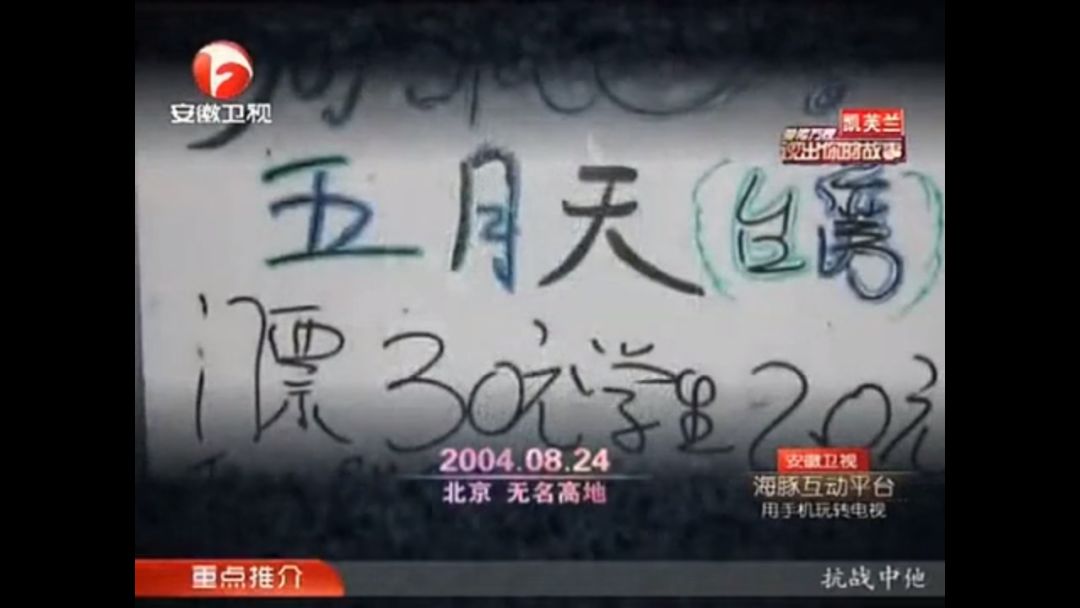 安徽卫视
凯芙兰
说出你的故事
五月天(台湾)
门票30元学生20元
2004.08.24
北京 无名高地
安徽卫视
海豚互动平台
用手机玩转电视
重点推介
抗战中他